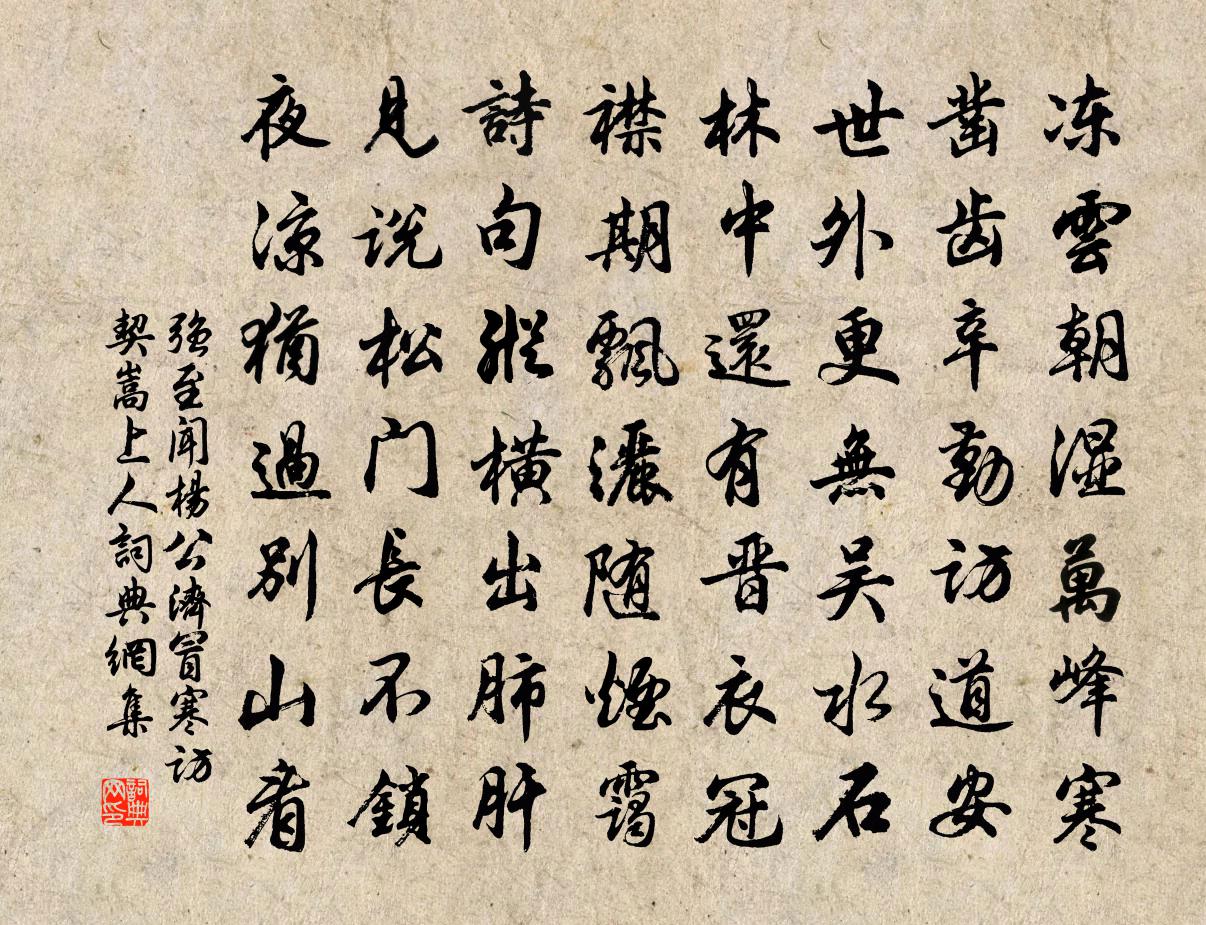 冻雲朝湿萬峰寒
凿齿辛勤访道安
世外更無吴水石
林中還有晋衣冠
襟期飄灑随煙靄
詩句縱橫出肺肝
見说松门長不鎖
夜凉猶過别山看
强至闻楊公濟冒寒访
契嵩上人詞典網集
詞典
网印